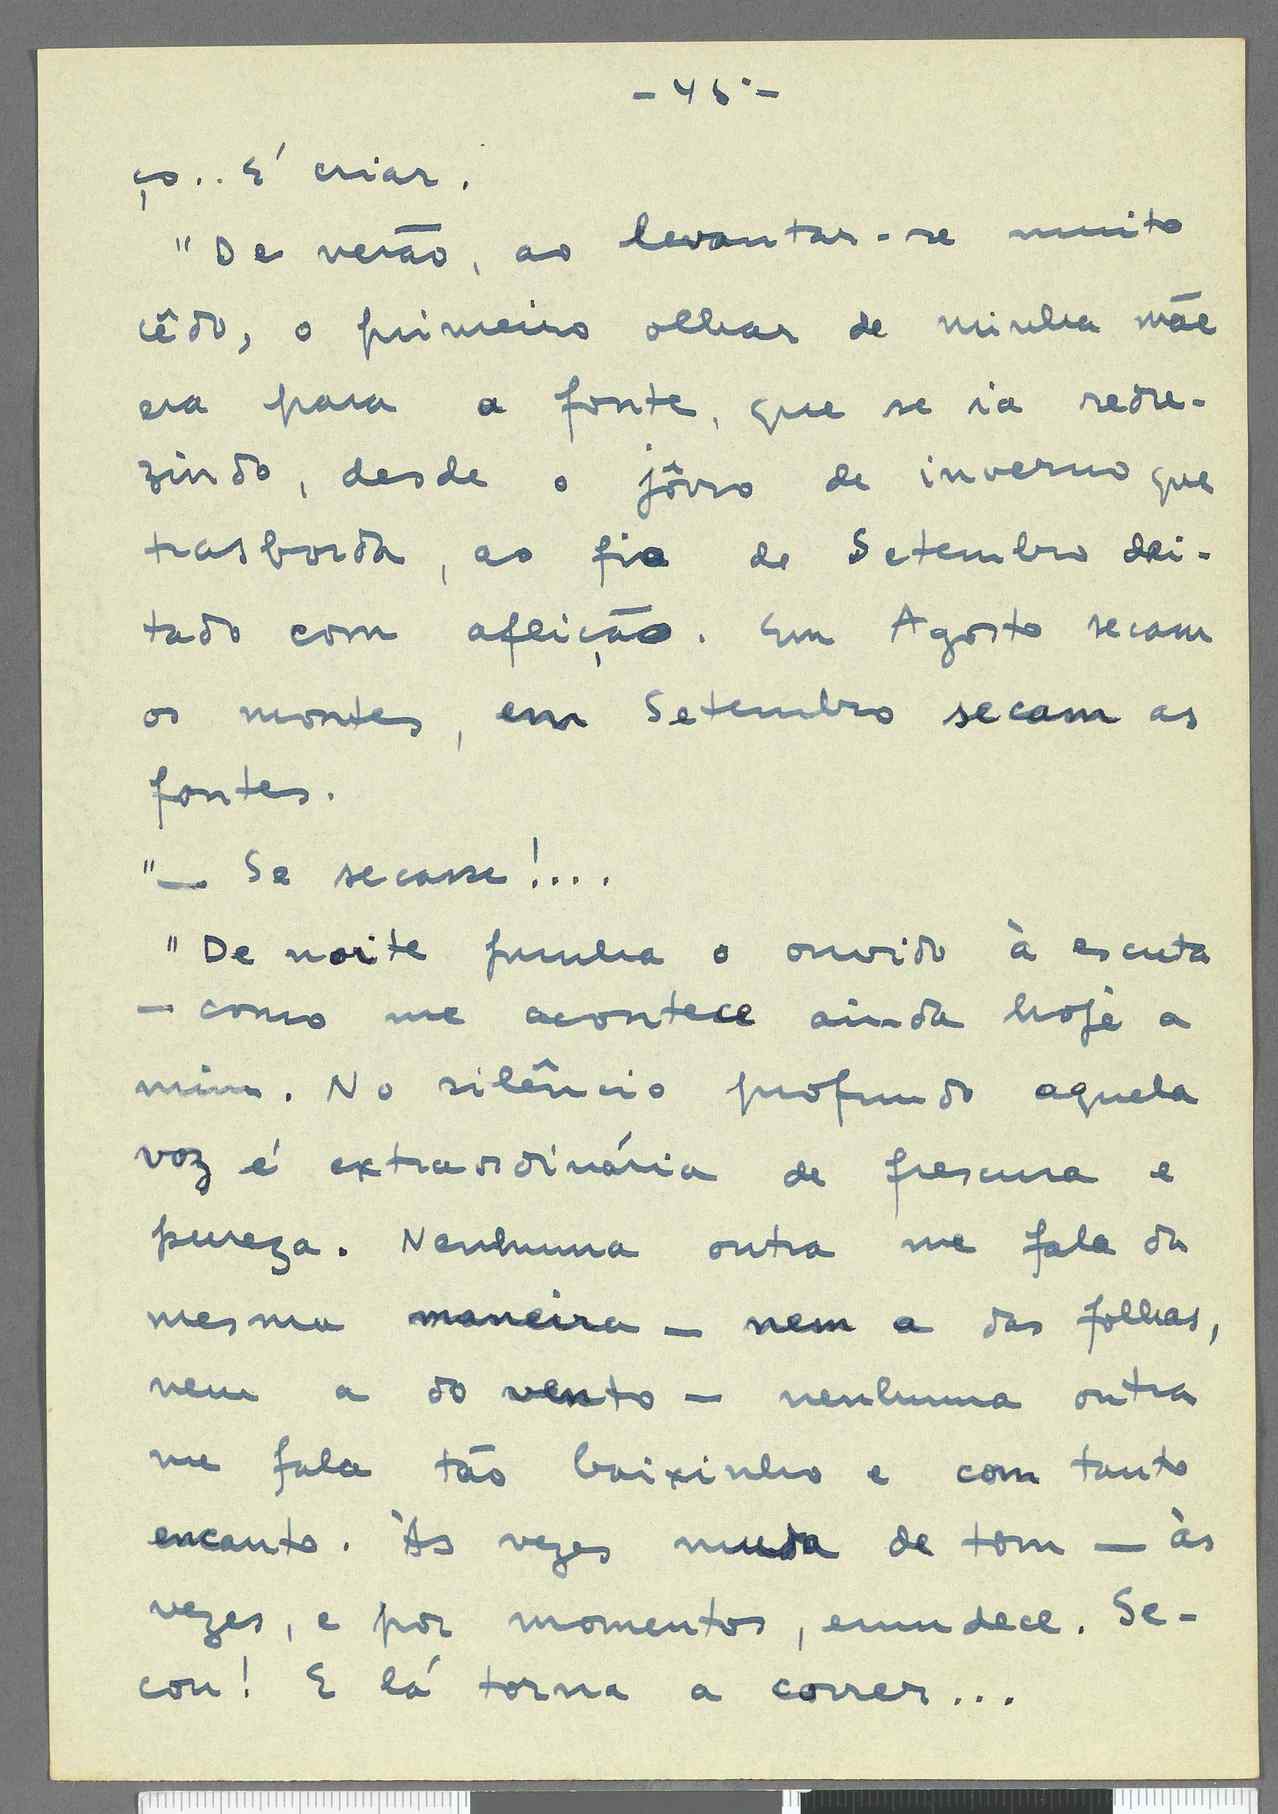 - 45 -
ço.. É criar.
"De verão, ao levantar-se muito
cêdo, o primeiro olhar de minha mãe
era para a fonte, que se ia redu-
zindo, desde o jôrro de inverno que
trasborda, ao fio de Setembro dei-
tado com aflição. Em Agosto secam
os montes, em Setembro secam as
fontes.
"— Se secasse!...
"De noite punha o ouvido à escuta
— como me acontece ainda hoje a
mim. No silêncio profundo aquela
voz é extraordinária de frescura e
pureza. Nenhuma outra me fala da
mesma maneira — nem a das folhas,
nem a do vento — nenhuma outra
me fala tão baixinho e com tanto
encanto. Às vezes muda de tom — às
vezes, e por momentos, emudece. Se-
cou! E lá torna a correr...